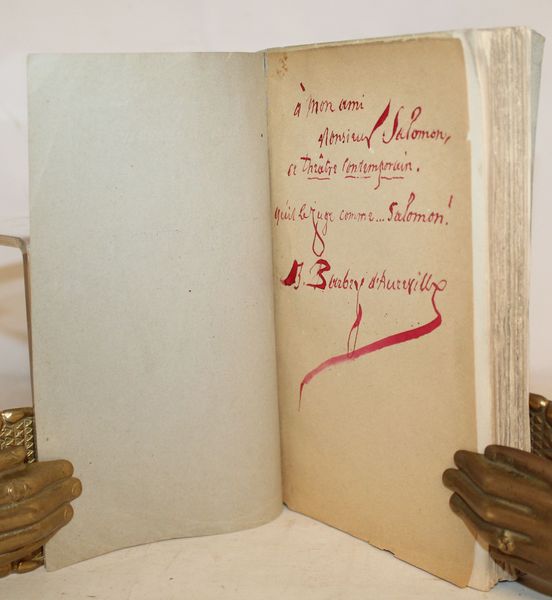 à mon ami
Monsieur Salomon,
ce Théâtre Contemporain.
qu'il le juge comme... Salomon!
J. Barbey d'Aurevilly